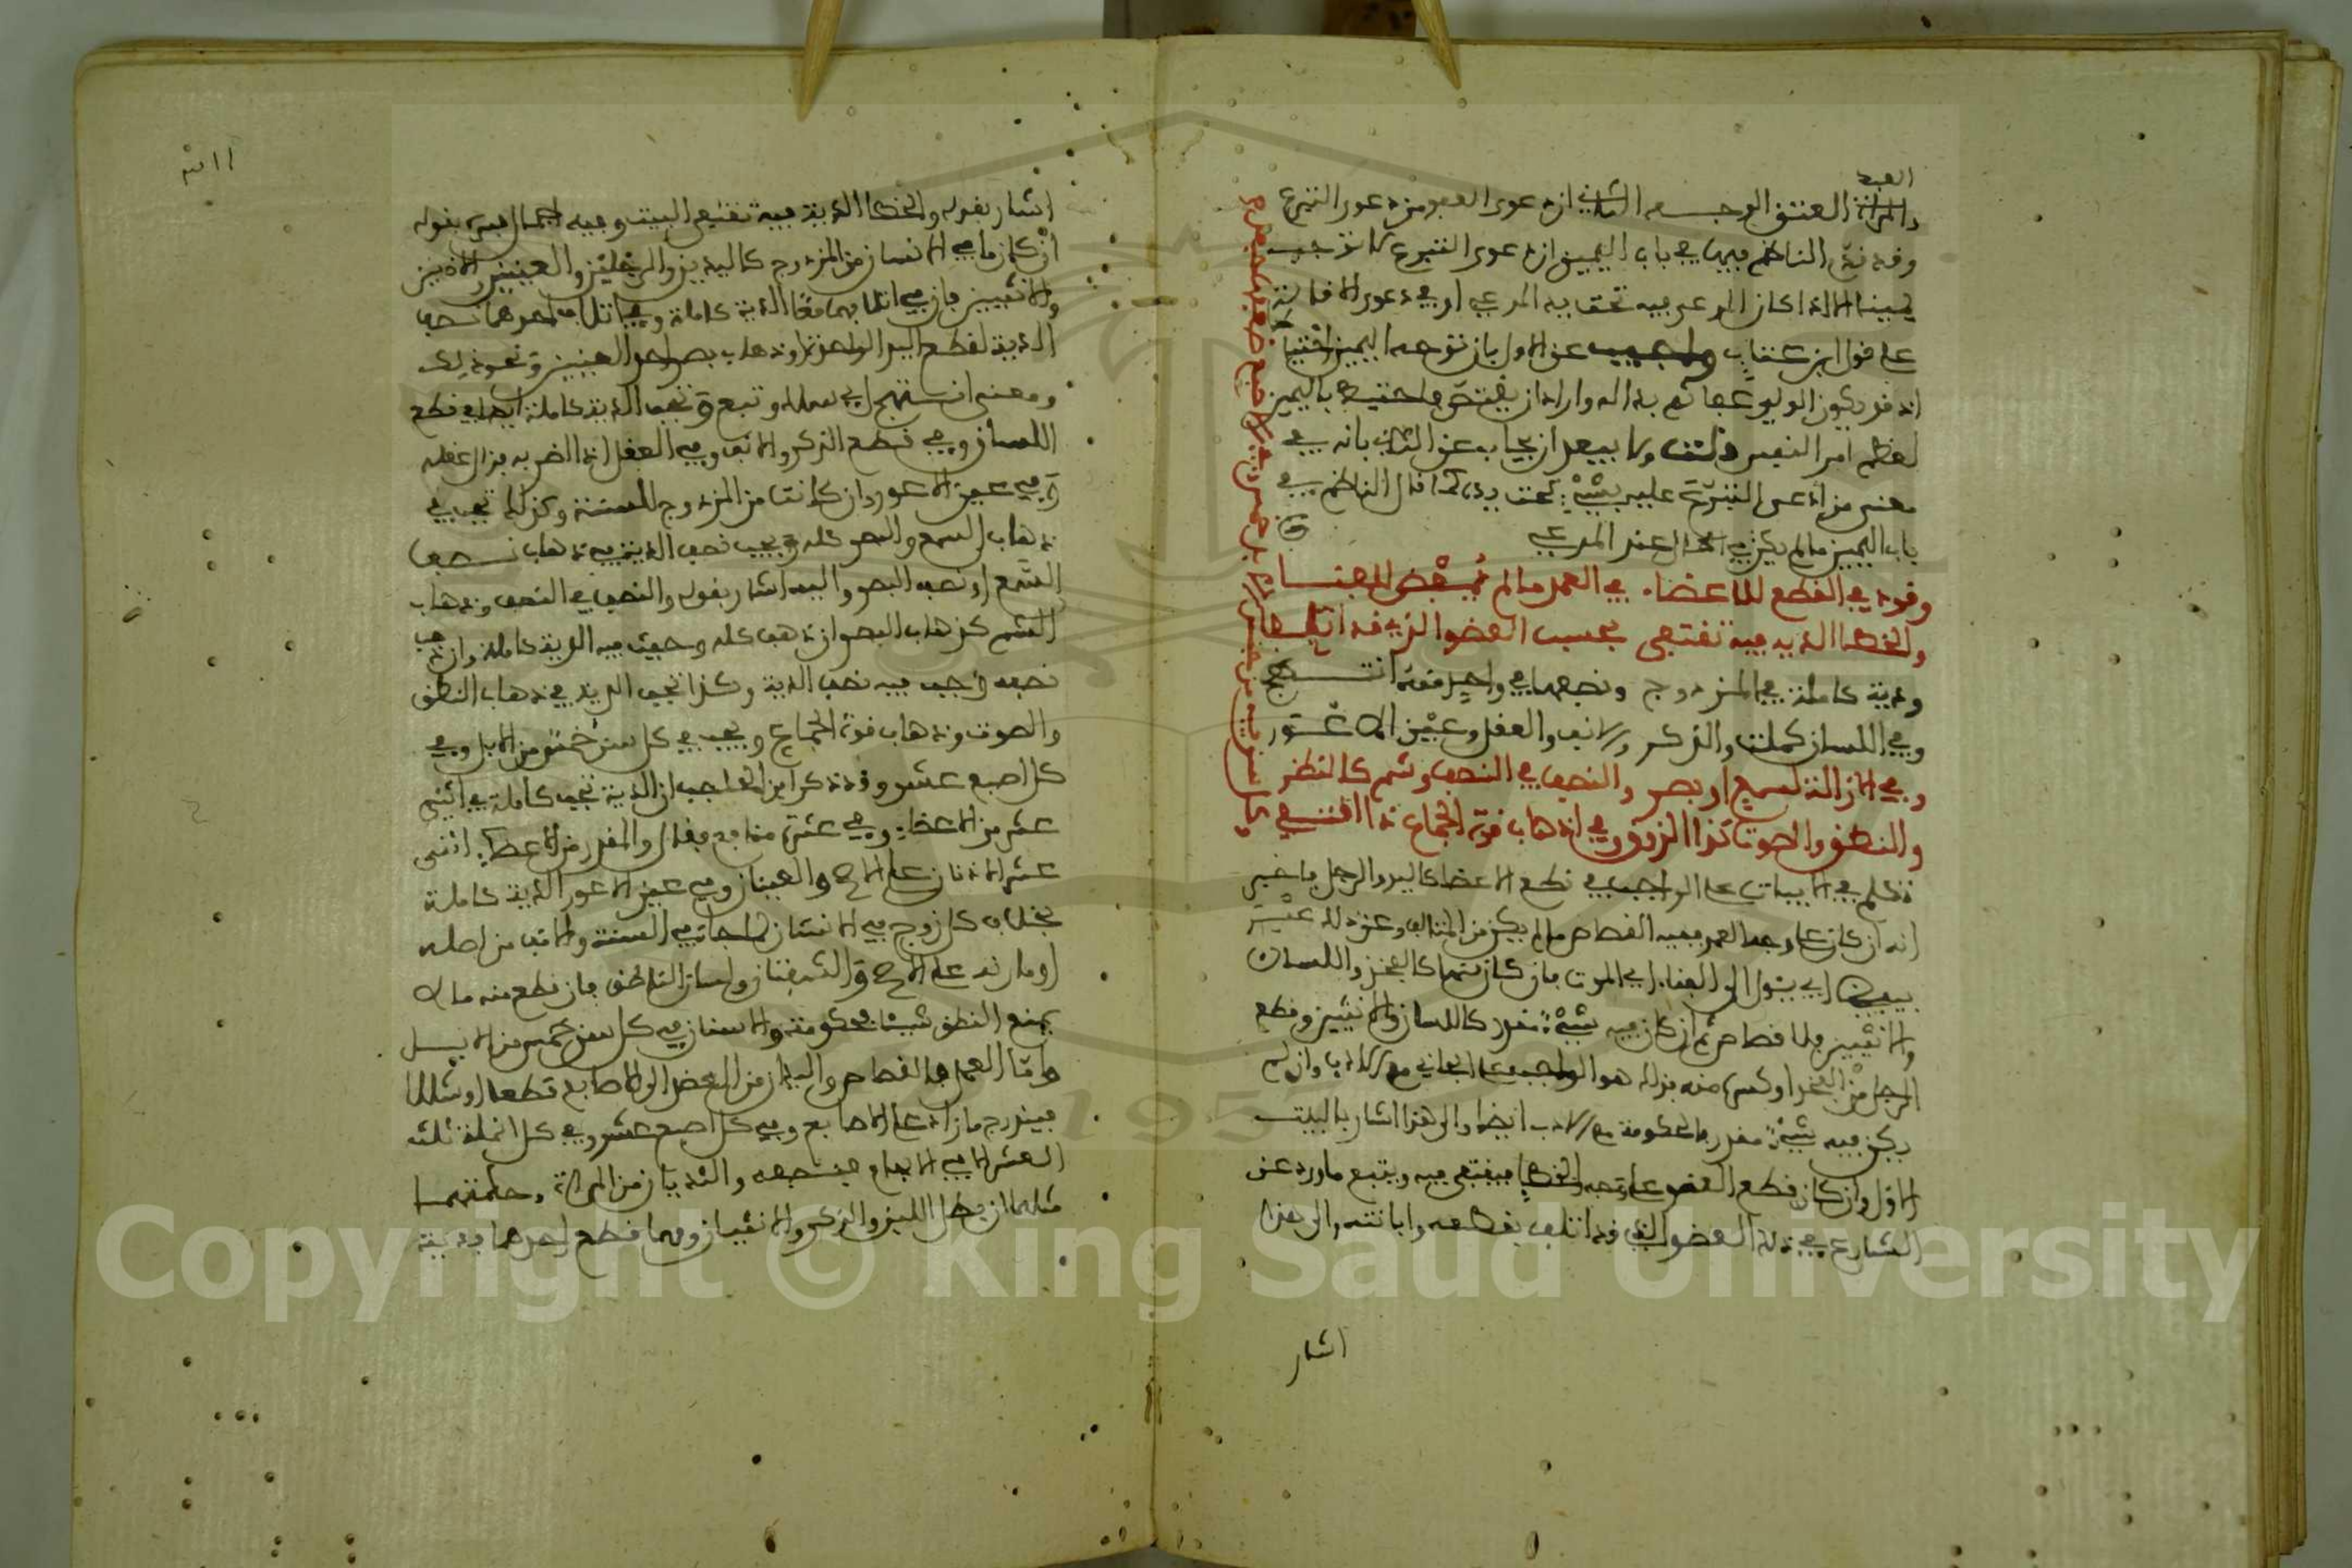 العبد
والمرأة العتق الوجه الثاني ان دعوى العفو من دعوى التبرع
وقد نص الناظم فيها في باب اليمين ان دعوى التبرع لا توجب
يمينا الا اذا كان المدعى فيه تحت يد المدعي او في دعوى الاقالة
على قول ابن عتاب واجيب عن الاول بان توجه اليمين
انه قد يكون الولي عفا ثم بدا له واراد ان يقتص فاحتيط باليمين
لعظم امر النفس قلت ولا يبعد ان يجاب عن الثاني بانه في
معنى من ادعى التبرع عليه بشيء تحت يده كما قال الناظم في
باب اليمين ما لم يكن في الحال عند المدعي
وقود في القطع للاعضاء في العمد ما لم يفض للفناء
والخطأ الدية فيه تقتفى بحسب العضو الذي قد اتلفا
ودية كاملة في المزدوج ونصفها في واحد منه انتهج
وفي اللسان كملت والذكر والانف والعقل وعين الاعور
وفي ازالة لسمع او بصر والنصف في النصف وشم كالنظر
والنطق والصوت كذا الذوق وفي اذهاب قوة الجماع ذا اقتفي
وكل سن فيه من جنس الابل خمس وفي الاصبع ضعفها جعل
تكلم في الابيات على الواجب في قطع الاعضاء كاليد والرجل فاخبر
انه ان كان على وجه العمد ففيه القصاص ما لم يكن من المتالف وعن ذلك عبر
بيفض اي يئول الى الفناء اي الموت فان كان منها كالفخذ واللسان
والانثيين فلا قصاص ثم ان كان فيه شيء مقدر كاللسان والانثيين وقطع
الرجل من الفخذ او كسرها منه فذلك هو الواجب على الجاني مع الادب وان لم
يكن فيه شيء مقدر فالحكومة مع الادب ايضا والى هذا اشار بالبيت
الاول وان كان قطع العضو على وجه الخطا فيقتفى فيه ويتبع ما ورد عن
الشارع في دية العضو الذي قد اتلف بقطعه وابانته والى هذا
اشار
اشار بقوله والخطا الدية فيه تقتفى البيت وفيه اجمال فسره بقوله
ان كان ما في الانسان من المزدوج كاليدين والرجلين والعينين والاذنين
والانثيين فان في اتلافهما معا الدية كاملة وفي اتلاف احدهما نصف
الدية لقطع اليد الواحدة او ذهاب بصر احد العينين ونحو ذلك
ومعنى انتهج اي سلك وتبع وتجب الدية كاملة ايضا في قطع
اللسان وفي قطع الذكر والانف وفي العقل اذا اضر به فزال عقله
وفي عين الاعور وان كانت من المزدوج للسنة وكذلك تجب في
ذهاب السمع والبصر كله ويجب نصف الدية في ذهاب نصف
السمع او نصف البصر واليه اشار بقوله والنصف في النصف وذهاب
الشم كذهاب البصر ان ذهب كله وجبت فيه الدية كاملة وان ذهب
نصفه وجب فيه نصف الدية وكذا تجب الدية في ذهاب النطق
والصوت وذهاب قوة الجماع ويجب في كل سن خمس من الابل وفي
كل اصبع عشر وقد ذكر ابن الحاجب ان الدية تجب كاملة في اثني
عشر من الاعضاء وفي عشرة منافع فقال والمقدر من الاعضاء اثنى
عشر الاذنان على الاصح والعينان وفي عين الاعور الدية كاملة
بخلاف كل زوج في الانسان لما جاء في السنة والانف من اصله
او مارنه على الاصح والشفتان ولسان الناطق فان قطع منه ما لا
يمنع النطق شيئا فحكومة والاسنان في كل سن خمس من الابل
واما العمد فالقصاص واليدان من العضد الى الاصابع قطعا او شللا
فيندرج ما زاد على الاصابع وفي كل اصبع عشر وفي كل انملة ثلث
العشر الا في الابهام فنصفه والثديان من المرأة وحلمتهما
مثلهما ان بطل اللبن والذكر والانثيان ومهما قطع احدهما فدية